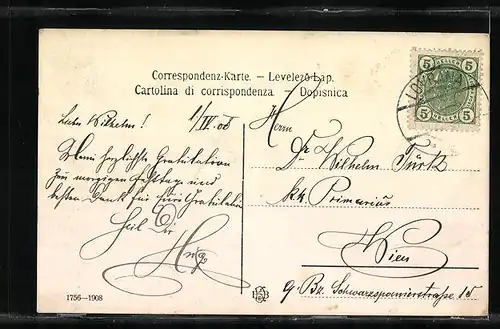 Correspondenz-Karte. – Levelező-Lap.
Cartolina di corrispondenza. – Dopisnica
5 HELLER 5
5 HELLER 5
LOVRANA
1/IV. 08
Lieber Wilhelm!
Meine herzlichste Gratulation
zum morgigen Festtag und
besten Dank für Eure Gratulation
Heil Dir
Hugo
Herrn
Dr. Wilhelm Türk
k.k. Primarius
Wien
9. Bz. Schwarzspanierstraße 15
1756—1908